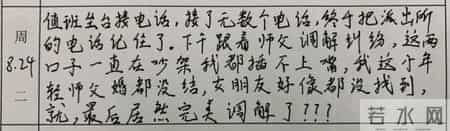 周
8.24
二
值班坐台接电话，接了无数个电话，终于把派出所
的电话记住了。下午跟着师父调解纠纷，这两
口子一直在吵架我都插不上嘴，我这个年
轻师父婚都没结，女朋友好像都没找到，
就，最后居然完美调解了???
若水网